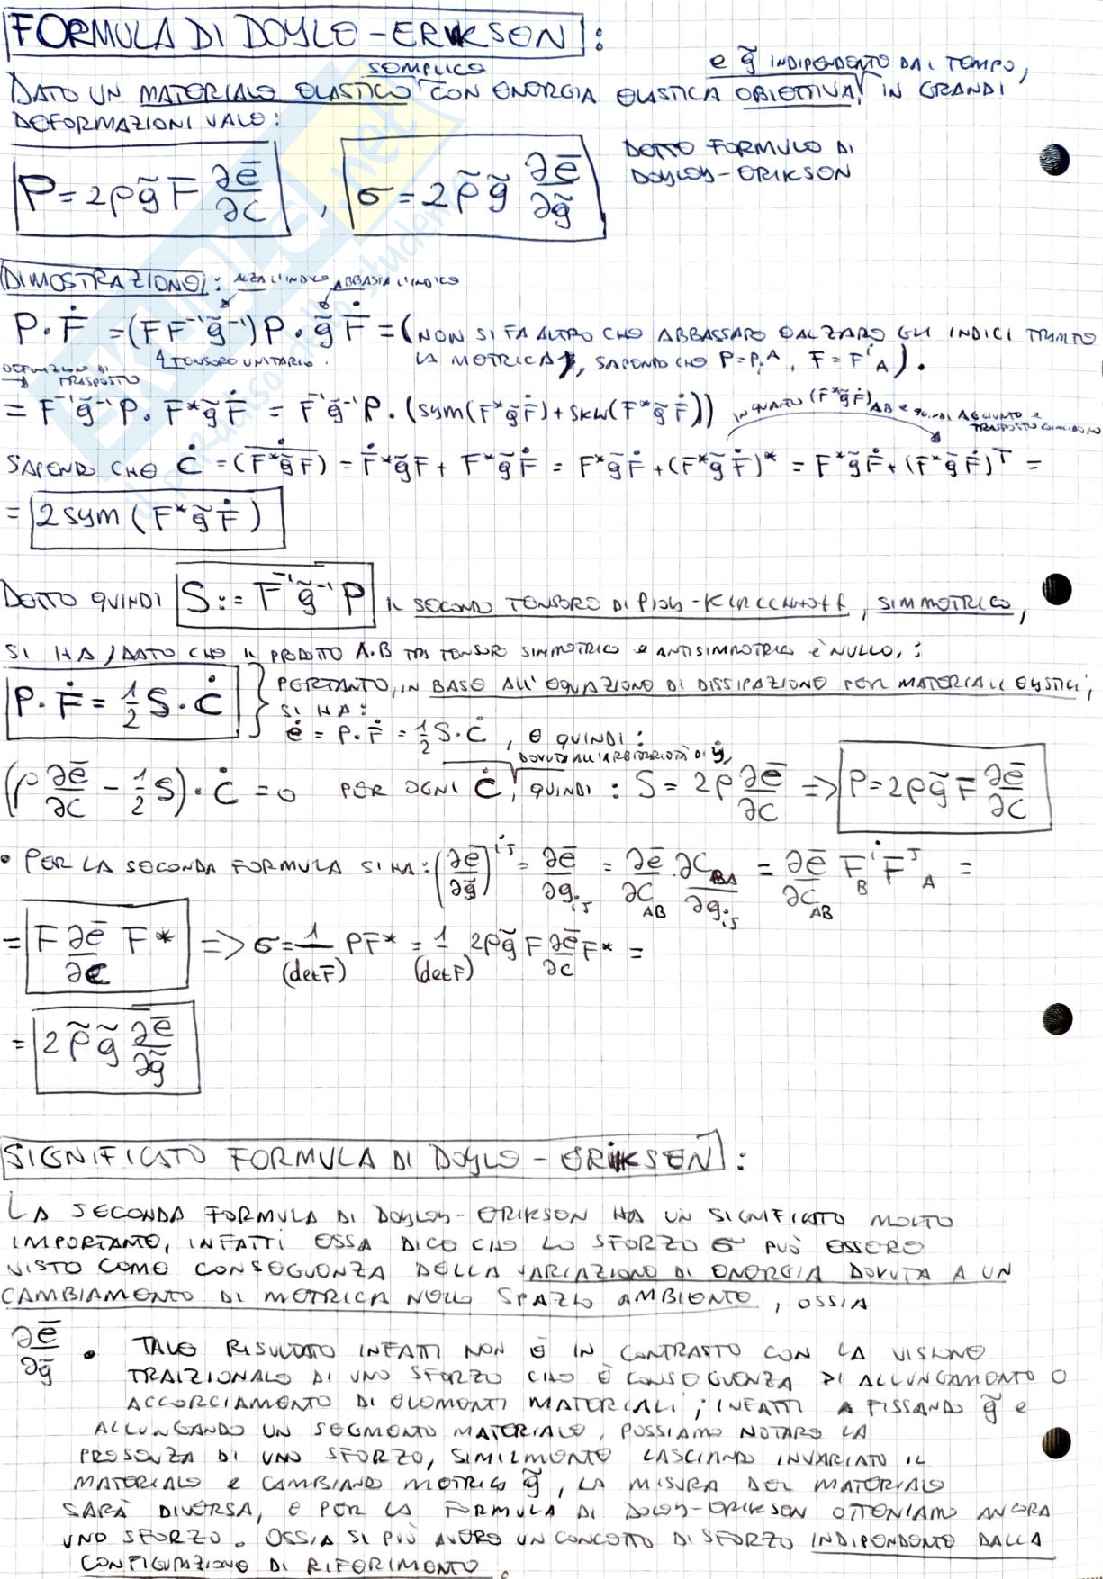 FORMULA DI DOYLE-ERIKSEN:
DATO UN MATERIALE ELASTICO SEMPLICE CON ENERGIA ELASTICA OBIETTIVA, e g̃ INDIPENDENTE DAL TEMPO, IN GRANDI
DEFORMAZIONI VALE:
P = 2ρg̃F ∂ē/∂C , σ = 2ρ̃g̃ ∂ē/∂g̃
DETTE FORMULE DI
DOYLEY-ERIKSON
DIMOSTRAZIONE: ALZA L'INDICE ABBASSA L'INDICE
P·Ḟ = (FF⁻¹g̃⁻¹)P · g̃Ḟ = (NON SI FA ALTRO CHE ABBASSARE ED ALZARE GLI INDICI TRAMITE
TENSORE UNITARIO. LA METRICA g, SAPENDO CHE P=PᵢA, F=FⁱA).
DEFINIZIONE DI TRASPOSTO
= F⁻¹g̃⁻¹P · F*g̃Ḟ = F⁻¹g̃⁻¹P · (sym(F*g̃Ḟ) + skw(F*g̃Ḟ)) IN QUANTO (F*g̃Ḟ)AB E QUINDI AGGIUNTO E
TRASPOSTO COINCIDONO
SAPENDO CHE Ċ = (F*g̃F)˙ = Ḟ*g̃F + F*g̃Ḟ = F*g̃Ḟ + (F*g̃Ḟ)* = F*g̃Ḟ + (F*g̃Ḟ)ᵀ =
= 2sym(F*g̃Ḟ)
DETTO QUINDI S := F⁻¹g̃⁻¹P IL SECONDO TENSORE DI PIOLA-KIRCCHHOFF, SIMMETRICO,
SI HA, DATO CHE IL PRODOTTO A·B TRA TENSORE SIMMETRICO e ANTISIMMETRICO È NULLO,:
P·Ḟ = ½ S·Ċ } PERTANTO, IN BASE ALL'EQUAZIONE DI DISSIPAZIONE PER MATERIALI ELASTICI,
SI HA:
ė = P·Ḟ = ½ S·Ċ , E QUINDI:
DOVUTA ALL'ARBITRARIETÀ DI ẏ,
(ρ ∂ē/∂C - ½ S)·Ċ = 0 PER OGNI Ċ, QUINDI: S = 2ρ ∂ē/∂C => P = 2ρg̃F ∂ē/∂C
• PER LA SECONDA FORMULA SI HA: (∂ē/∂g̃)ⁱʲ = ∂ē/∂gᵢⱼ = ∂ē/∂C_AB · ∂C_BA/∂gᵢⱼ = ∂ē/∂C_AB Fⁱ_B Fʲ_A =
= F ∂ē/∂C F* => σ = 1/(detF) PF* = 1/(detF) 2ρg̃F ∂ē/∂C F* =
= 2ρ̃g̃ ∂ē/∂g̃
SIGNIFICATO FORMULA DI DOYLE-ERIKSEN:
LA SECONDA FORMULA DI DOYLEY-ERIKSON HA UN SIGNIFICATO MOLTO
IMPORTANTE, INFATTI ESSA DICE CHE LO SFORZO σ PUÒ ESSERE
VISTO COME CONSEGUENZA DELLA VARIAZIONE DI ENERGIA DOVUTA A UN
CAMBIAMENTO DI METRICA NELLO SPAZIO AMBIENTE, OSSIA
∂ē/∂g̃ . TALE RISULTATO INFATTI NON È IN CONTRASTO CON LA VISIONE
TRAIZIONALE DI UNO SFORZO CHE È CONSEGUENZA DI ALLUNGAMENTO O
ACCORCIAMENTO DI ELEMENTI MATERIALI; INFATTI A FISSANDO g̃ e
ALLUNGANDO UN SEGMENTO MATERIALE, POSSIAMO NOTARE LA
PRESENZA DI UNO SFORZO, SIMILMENTE LASCIANDO INVARIATO IL
MATERIALE e CAMBIANDO METRICA g̃, LA MISURA DEL MATERIALE
SARÀ DIVERSA, E PER LA FORMULA DI DOYLEY-ERIKSON OTTENIAMO ANCORA
UNO SFORZO. OSSIA SI PUÒ AVERE UN CONCETTO DI SFORZO INDIPENDENTE DALLA
CONFIGURAZIONE DI RIFERIMENTO.